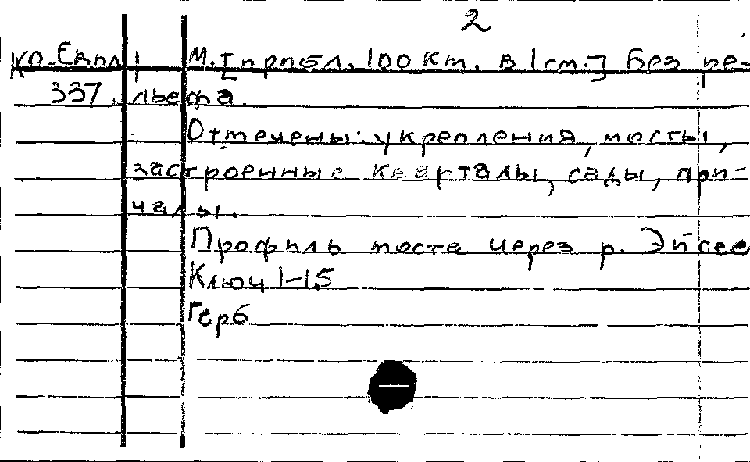 2
КО-Европ. | М. [прибл. 100 км. в 1 см.] Без ре-
337. льефа.
Отмечены: укрепления, мосты,
застроенные кварталы, сады, при-
чалы.
Профиль моста через р. Эйсел
Ключ 1-15
Герб